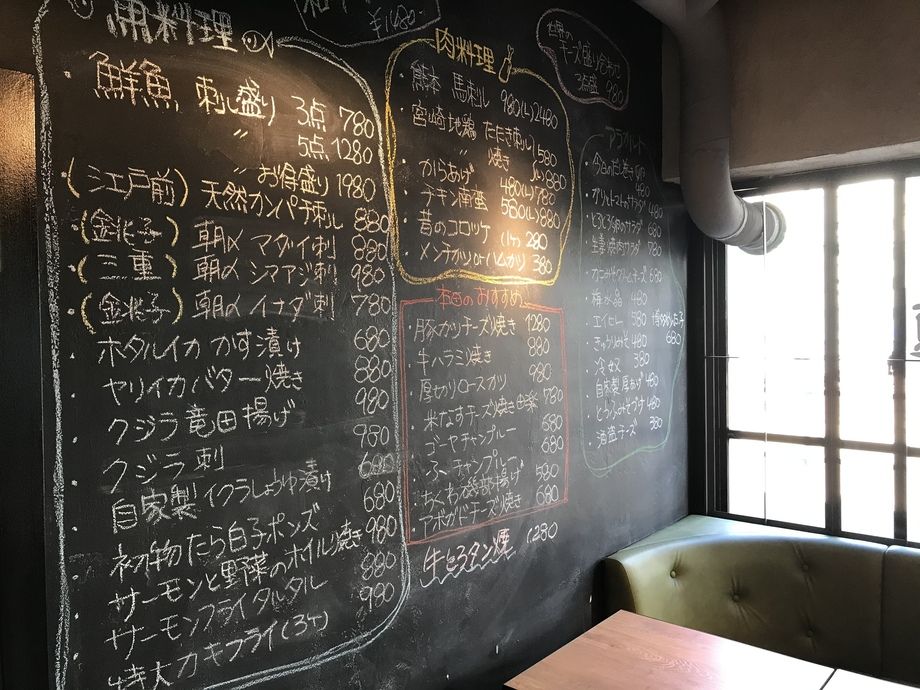 料理
鮮魚 刺し盛り 3点 780
〃 5点 1280
〃 お得盛り 1980
(江戸前) 天然カンパチ刺し 880
(金兆子) 朝〆 マダイ刺 880
(三重) 朝〆 シマアジ刺 980
(金兆子) 朝〆 イナダ刺 780
・ホタルイカ かす漬け 680
・ヤリイカバター焼き 880
・クジラ竜田揚げ 980
・クジラ刺 980
・自家製イクラしょうゆ漬け 680
・初物たら白子ポンズ 680
・サーモンと野菜のホイル焼き 980
・サーモンフライタルタル 880
・特大カキフライ(3ケ) 980
¥1,680-
肉料理
・熊本 馬刺し 980(L)2480
・宮崎地鶏 たたき刺し 580
〃 焼き (L)880
・からあげ 480(L)780
・チキン南蛮 580(L)880
・昔のコロッケ (1ケ) 280
・メンチカツorハムカツ 380
本田のおすすめ
・豚カツチーズ焼き 1280
・牛ハラミ焼き 880
・厚切りロースカツ 980
・米なすチーズ焼き 780
・ゴーヤチャンプルー 680
・ふーチャンプルー 680
・ちくわ磯部揚げ 580
・アボガドチーズ焼き 680
牛とろタン煙 1,280
チーズ盛り合わせ
3点盛 980
アラカルト
・今日のだし巻き
480
・グリルトマトのサラダ 480
・サラダ 680
・生春巻のサラダ 780
・カニみそクリームチーズ 680
・梅水晶 480
・エイヒレ 580
・きゅうりみそ 480
680
・冷奴 380
・自家製厚あげ 480
・とうふみそづけ 480
・酒盗チーズ 380